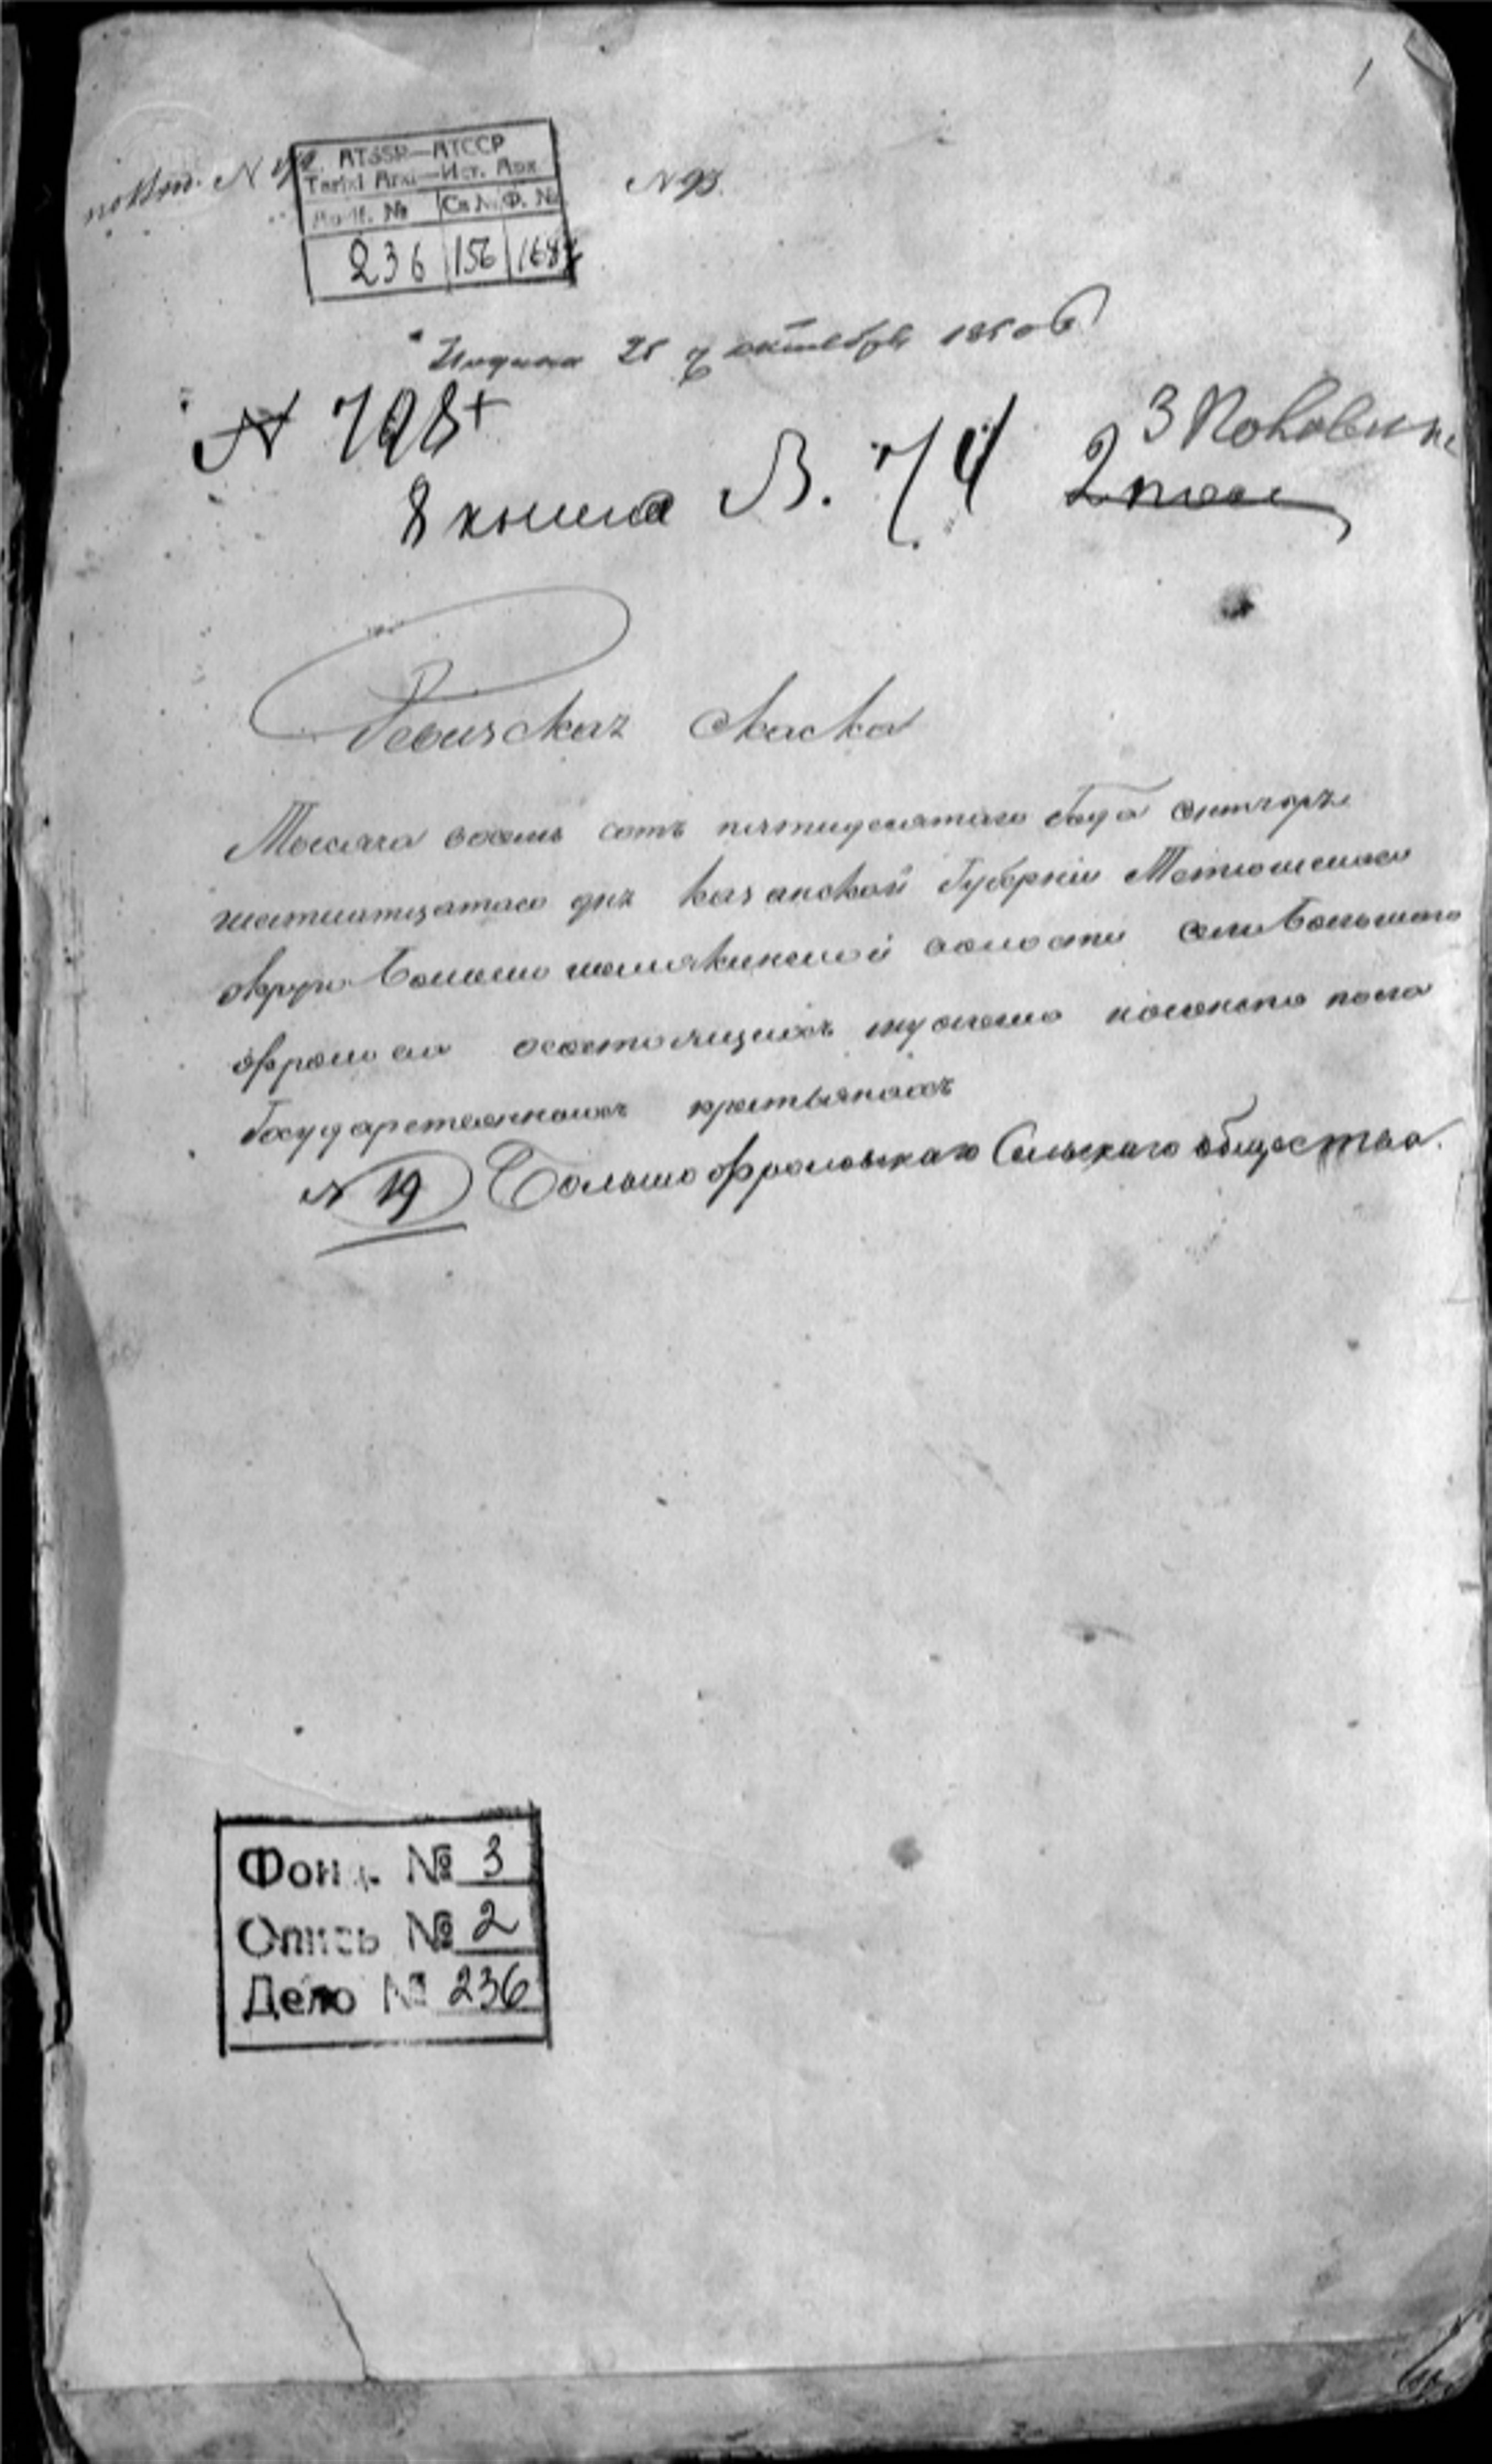 1
ATSSR—АТССР
Tarixi Arxi—Ист. Арх
№ Св № Ф. №
236 156
N 93.
Подана 25 октября 1850
N 798+
3 половина
8 книга В. 74
Ревизская скаска
Тысяча восемь сотъ пятидесятаго года сентября
шестнатцатаго дня казанской Губерніи Тетюшскаго
округи Больше шемякинской волости села Большаго
Фролова о состоящихъ мужеска и женска пола
Государственныхъ крестьянахъ
N 19 Больше Фроловскаго Сельскаго общества.
Фонд № 3
Опись № 2
Дело № 236